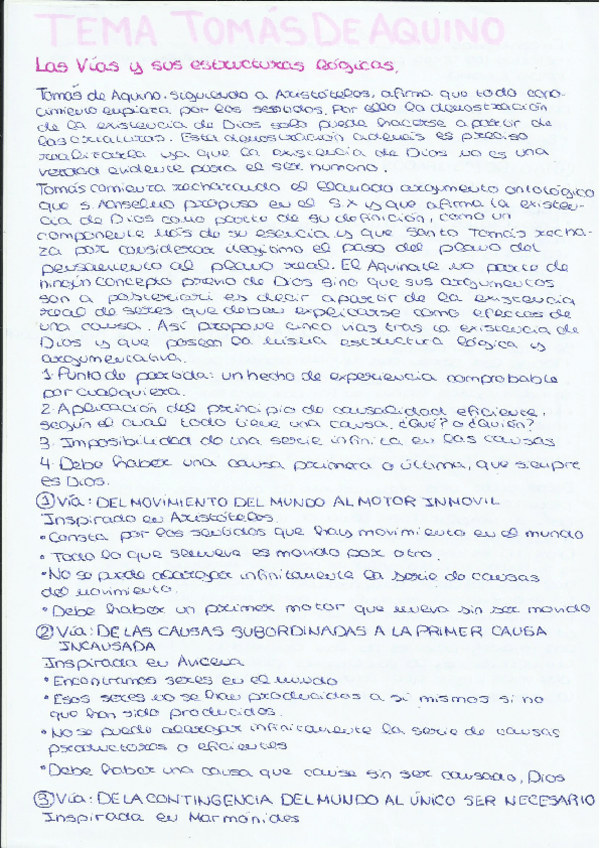 TEMA TOMÁS DE AQUINO
Las Vías y sus estructuras lógicas.
Tomás de Aquino, siguiendo a Aristóteles, afirma que todo cono-
cimiento empieza por los sentidos, por ello la demostración
de la existencia de Dios solo puede hacerse a partir de
las criaturas. Esta demostración además es preciso
realizarla ya que la existencia de Dios no es una
verdad evidente para el ser humano.
Tomás comienza rechazando el llamado argumento ontológico
que S. Anselmo propuso en el SX y que afirma la existen-
cia de Dios como parte de su definición, como un
componente más de su esencia y que Santo Tomás recha-
za por considerar ilegítimo el paso del plano del
pensamiento al plano real. El Aquinate no parte de
ningún concepto previo de Dios sino que sus argumentos
son a posteriori es decir a partir de la existencia
real de seres que deben explicarse como efectos de
una causa. Así propone cinco vías tras la existencia de
Dios y que poseen la misma estructura lógica y
argumentativa.
1. Punto de partida: un hecho de experiencia comprobable
por cualquiera.
2. Aplicación del principio de causalidad eficiente,
según el cual todo tiene una causa. ¿Qué? o ¿Quién?
3. Imposibilidad de una serie infinita en las causas
4. Debe haber una causa primera o última, que siempre
es Dios.
① Vía: DEL MOVIMIENTO DEL MUNDO AL MOTOR INMOVIL
Inspirado en Aristóteles.
• Consta por los sentidos que hay movimiento en el mundo
• Todo lo que se mueve es movido por otro.
• No se puede alargar infinitamente la serie de causas
del movimiento.
• Debe haber un primer motor que mueva sin ser movido
② Vía: DE LAS CAUSAS SUBORDINADAS A LA PRIMER CAUSA
INCAUSADA
Inspirada en Avicena
• Encontramos seres en el mundo
• Esos seres no se han producidos a sí mismos si no
que han sido producidos.
• No se puede alargar infinitamente la serie de causas
productoras o eficientes
• Debe haber una causa que cause sin ser causado, Dios
③ Vía: DE LA CONTINGENCIA DEL MUNDO AL ÚNICO SER NECESARIO
Inspirada en Marmónides